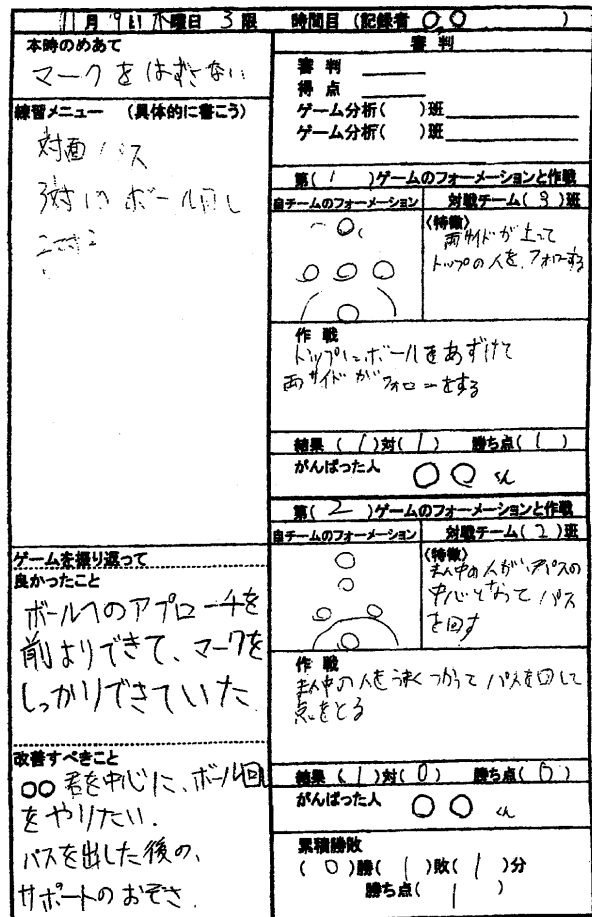 11月9日木曜日 3限 時間目(記録者 〇〇 )
本時のめあて
マークをはずさない
練習メニュー (具体的に書こう)
対面パス
3対1 ボール回し
2対2
ゲームを振り返って
良かったこと
ボールへのアプローチを
前よりできて、マークを
しっかりできていた
改善すべきこと
〇〇君を中心に、ボール回
をやりたい.
パスを出した後の、
サポートのおそさ.
審判
審判
得点
ゲーム分析( )班
ゲーム分析( )班
第(1)ゲームのフォーメーションと作戦
自チームのフォーメーション 対戦チーム(3)班
〈特徴〉
両サイドが上って
トップの人を、フォローする
作戦
トップにボールをあずけて
両サイドがフォローをする
結果(1)対(1) 勝ち点(1)
がんばった人 〇〇くん
第(2)ゲームのフォーメーションと作戦
自チームのフォーメーション 対戦チーム(2)班
〈特徴〉
まん中の人がパスの
中心となってパス
を回す
作戦
まん中の人をうまくつかってパスを回して
点をとる
結果(1)対(0) 勝ち点(0)
がんばった人 〇〇くん
累積勝敗
(0)勝(1)敗(1)分
勝ち点(1)